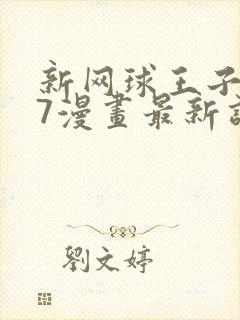 新网球王子
7漫畫最新
劉文婷